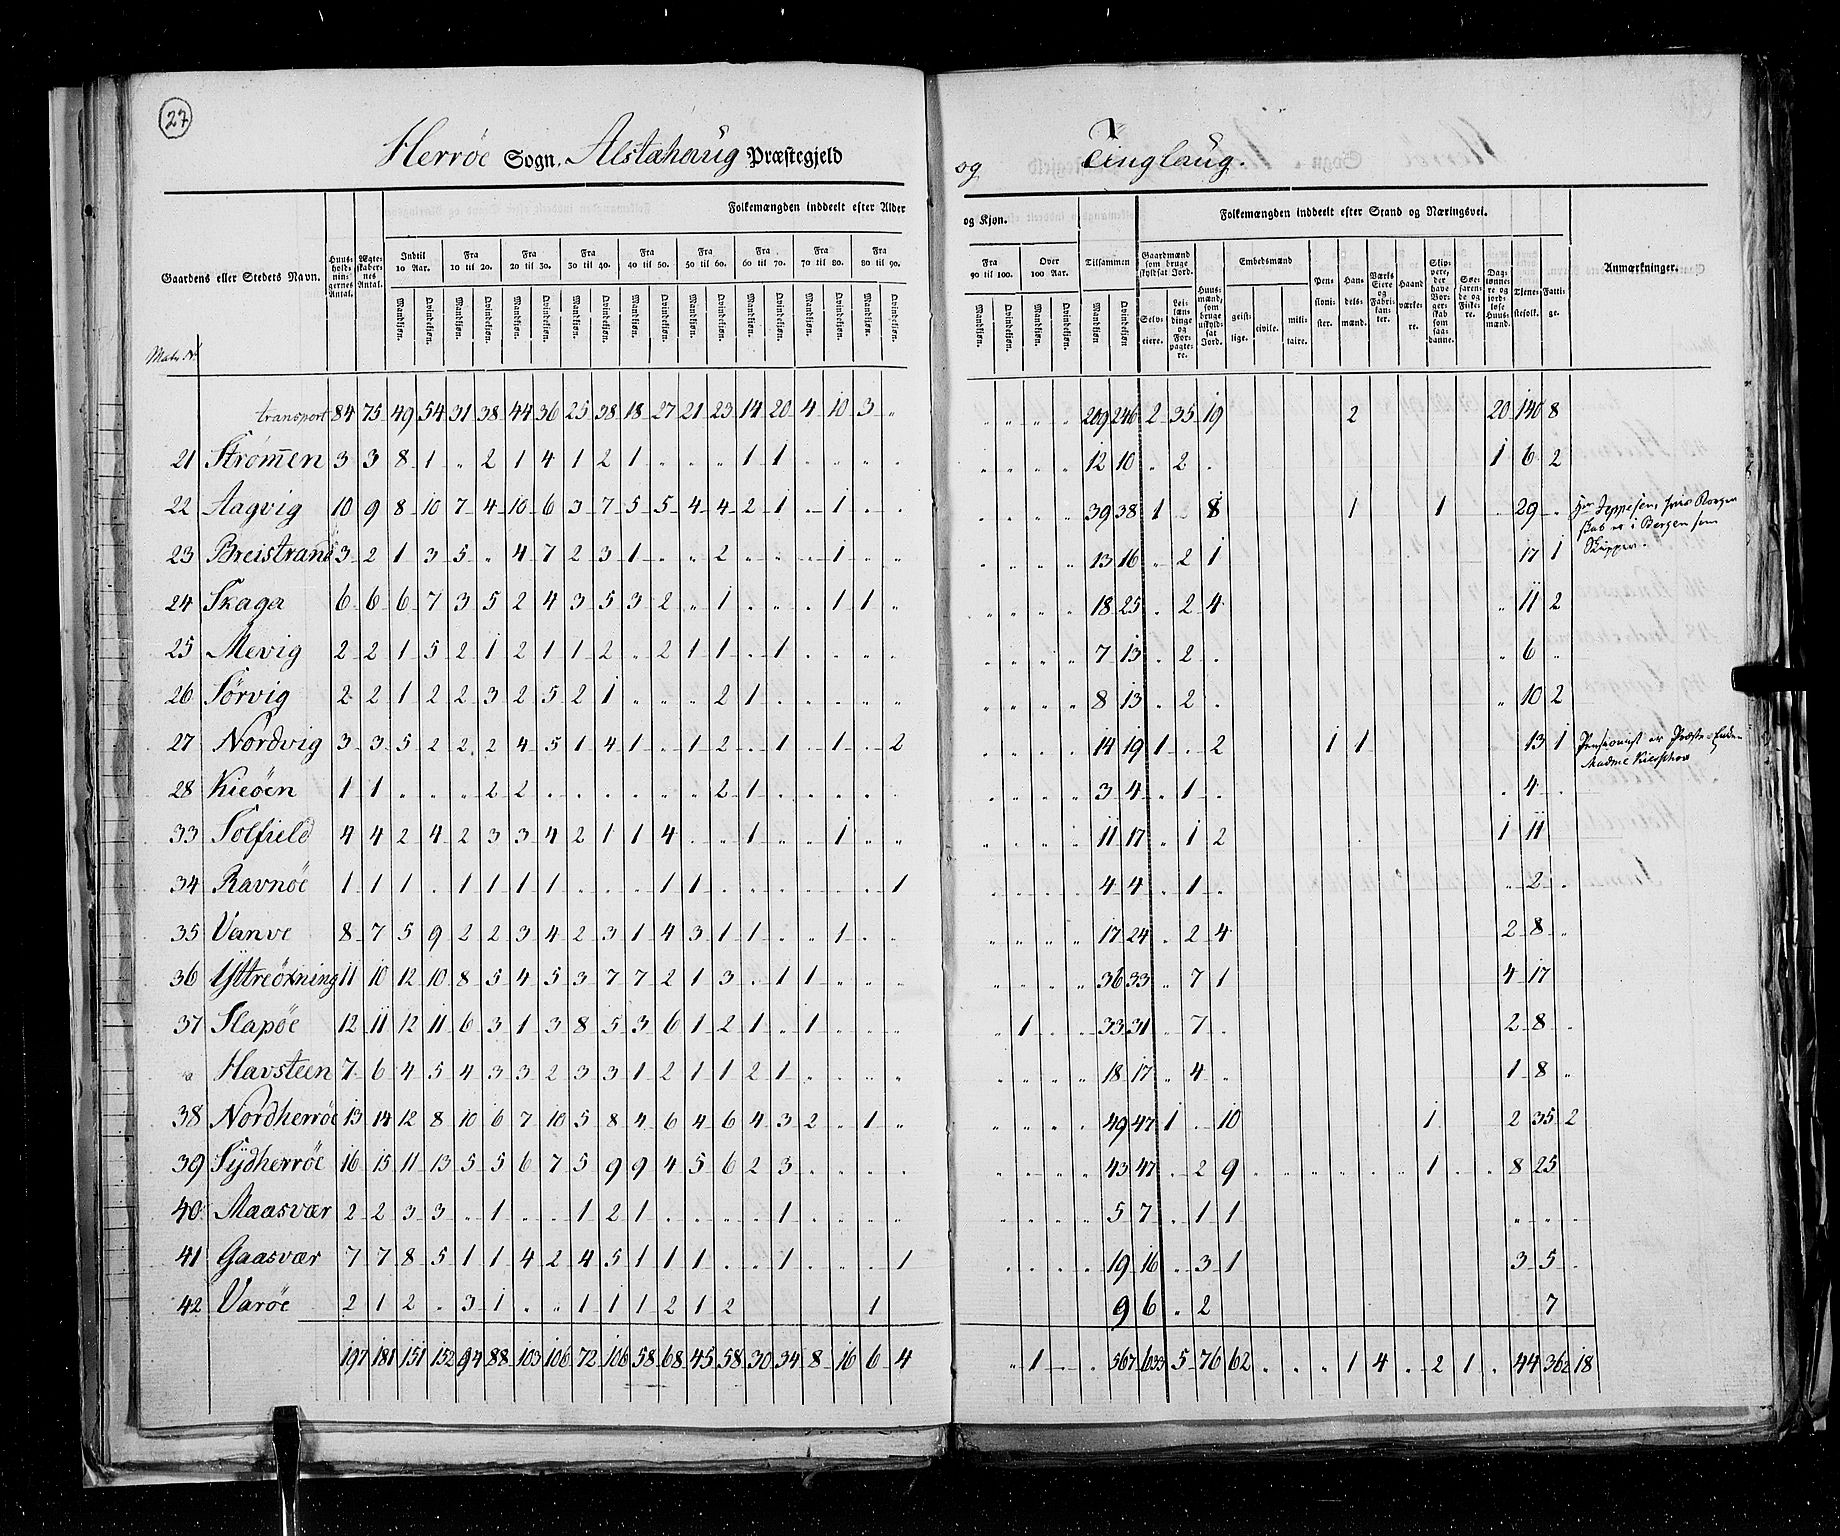 27
Herröe Sogn, Alstahoug Præstegjeld
og Tinglaug.
Gaardens eller Stedets Navn.
Huus-holdnin-gernes Antal.
Ægte-skaber-nes Antal.
Folkemængden inddeelt efter Alder
og Kjøn.
Indtil 10 Aar.
Fra 10 til 20.
Fra 20 til 30.
Fra 30 til 40.
Fra 40 til 50.
Fra 50 til 60.
Fra 60 til 70.
Fra 70 til 80.
Fra 80 til 90.
Fra 90 til 100.
Over 100 Aar.
Tilsammen
Mandkjøn. Qvindekjøn.
Folkemængden inddeelt efter Stand og Næringsvei.
Gaardmænd som bruge skyldsat Jord.
Selv-eiere.
Lei-læn-dinge og For-pagte-re.
Huus-mænd, som bruge uskyld-sat Jord.
Embedsmænd
geist-lige.
civile.
mili-taire.
Pen-sioni-ster.
Han-dels-mænd.
Værks Eiere og Fabri-kan-ter.
Haand værke-re.
Skip-pere, der have Bor-ger-skab som saa-danne.
Søe-faren-de og Fiske-re.
Dag-lønne-re og jord-løse Huus-mænd.
Tjene-stefolk.
Fatti-ge.
Anmærkninger.
Matr. Nr
transport 84 75 49 54 31 38 44 36 25 38 18 27 21 23 14 20 4 10 3 " " " " " 209 246 2 35 19 2 20 140 8
21 Strømen 3 3 8 1 " 2 1 4 1 2 1 " " " 1 1 " " " " " " " " 12 10 " 2 " 1 6 2
22 Aagvig 10 9 8 10 7 4 10 6 3 7 5 5 4 4 2 1 " 1 " " " " " " 39 38 1 " 8 1 1 " 29 "
23 Breistrand 3 2 1 3 5 " 4 7 2 3 1 " " 2 " " " 1 " " " " " " 13 16 " 2 1 17 1
24 Skaga 6 6 6 7 3 5 2 4 3 5 3 2 " 1 " " " 1 1 " " " " " 18 25 " 2 4 " 11 2
25 Mevig 2 2 1 5 2 1 2 1 1 2 " 2 1 1 " 1 " " " " " " " " 7 13 " 2 " " 6 "
26 Sørvig 2 2 1 2 2 3 2 5 2 1 " " " 2 1 " " " " " " " " " 8 13 " 2 " " 10 2
27 Nordvig 3 3 5 2 2 2 4 5 1 4 1 " 1 2 " 1 " 1 " 2 " " " " 14 19 1 " 2 1 1 13 1
28 Kieöen 1 1 " " " 2 2 " " " " " " 2 1 " " " " " " " " " 3 4 " 1 " " 4 "
33 Solfield 4 4 2 4 2 3 3 4 2 1 1 4 " " 1 " " 1 " " " " " " 11 17 " 1 2 1 11
34 Ravnöe 1 1 1 " 1 1 1 1 " " " 1 1 " " " " " " 1 " " " " 4 4 " 1 " " 2 "
35 Vanve 8 7 5 9 2 2 3 4 2 3 1 4 3 1 1 " " 1 " " " " " " 17 24 " 2 4 2 8 "
36 Yttreöxning 11 10 12 10 8 5 4 5 3 7 7 2 1 3 " 1 1 " " " " " " " 36 33 " 7 1 4 17
37 Slapöe 12 11 12 11 6 3 1 3 8 5 3 6 1 2 1 " 1 " " " " 1 " " 33 31 " 7 " 2 8 "
Havsteen 7 6 4 5 4 3 3 2 3 3 1 2 1 1 2 1 " " " " " " " " 18 17 " 4 " 1 8 "
38 Nordherröe 13 14 12 8 10 6 7 10 5 8 4 6 4 6 4 3 2 " 1 " " " " " 49 47 1 " 10 1 2 35 2
39 Sydherröe 16 15 11 13 5 5 6 7 5 9 9 4 5 6 2 3 " " " " " " " " 43 47 " 2 9 1 8 25
40 Maasvær 2 2 3 3 " 1 " " 1 2 1 " " " " 1 " " " " " " " " 5 7 " 1 1 " " "
41 Gaasvær 7 7 8 5 1 1 4 2 4 5 1 1 1 " " 1 " " " 1 " " " " 19 16 " 3 1 3 5 "
42 Varöe 2 1 2 " 3 1 " " 1 1 1 2 1 2 1 9 6 " 2 7
197 181 151 152 94 88 103 106 72 106 58 68 45 58 30 34 8 16 6 4 " 1 " " 567 633 5 76 62 " " " 1 4 " 2 1 " 44 362 18
Hr Jeppesen, hvis Borger
skab er i Bergen som
Skipper.
Pensionist er Præste-Enke
Madme